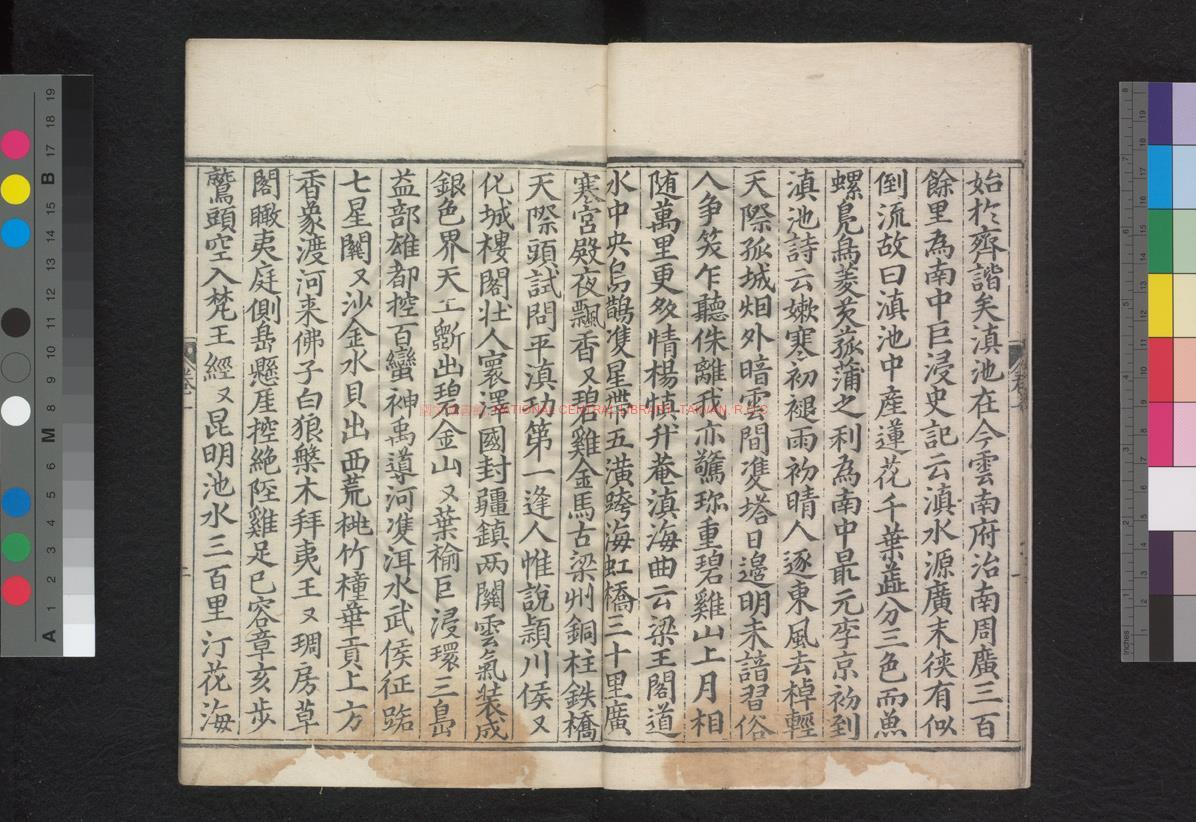 始於齊諧矣滇池在今雲南府治南周廣三百
餘里為南中巨浸史記云滇水源廣末狹有似
倒流故曰滇池中産蓮花千葉蕋分三色而魚
螺鳧鳥菱芡菰蒲之利為南中最元李京初到
滇池詩云嫩寒初褪雨初晴人逐東風去棹輕
天際孤城烟外暗雲間雙塔日邊明未諳習俗
人争笑乍聽侏離我亦驚珎重碧雞山上月相
随萬里更多情楊慎升菴滇海曲云梁王閣道
水中央烏鵲雙星帶五潢跨海虹橋三十里廣
寒宮殿夜飄香又碧雞金馬古梁州銅柱鉄橋
天際頭試問平滇功第一逢人惟說潁川侯又
化城樓閣壮人寰澤國封疆鎮两關雲氣装成
銀色界天工斵出碧金山又葉榆巨浸環三島
益部雄都控百蠻神禹導河雙洱水武侯征路
七星關又沙金水貝出西荒桃竹橦華貢上方
香象渡河来佛子白狼槃木拜夷王又琱房草
閣瞰夷庭側島懸厓控絶陘雞足已容章亥步
鷲頭空入梵王經又昆明池水三百里汀花海
卷一
NATIONAL CENTRAL LIBRARY, TAIWAN, R.O.C